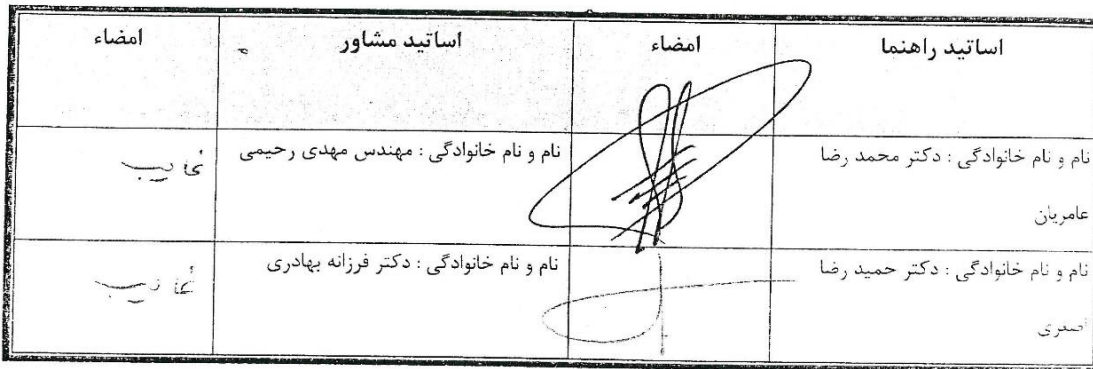 اساتید راهنما امضاء اساتید مشاور امضاء
نام و نام خانوادگی : دکتر محمد رضا
عامریان
نام و نام خانوادگی : مهندس مهدی رحیمی
غایب
نام و نام خانوادگی : دکتر حمید رضا
اصغری
نام و نام خانوادگی : دکتر فرزانه بهادری
غایب